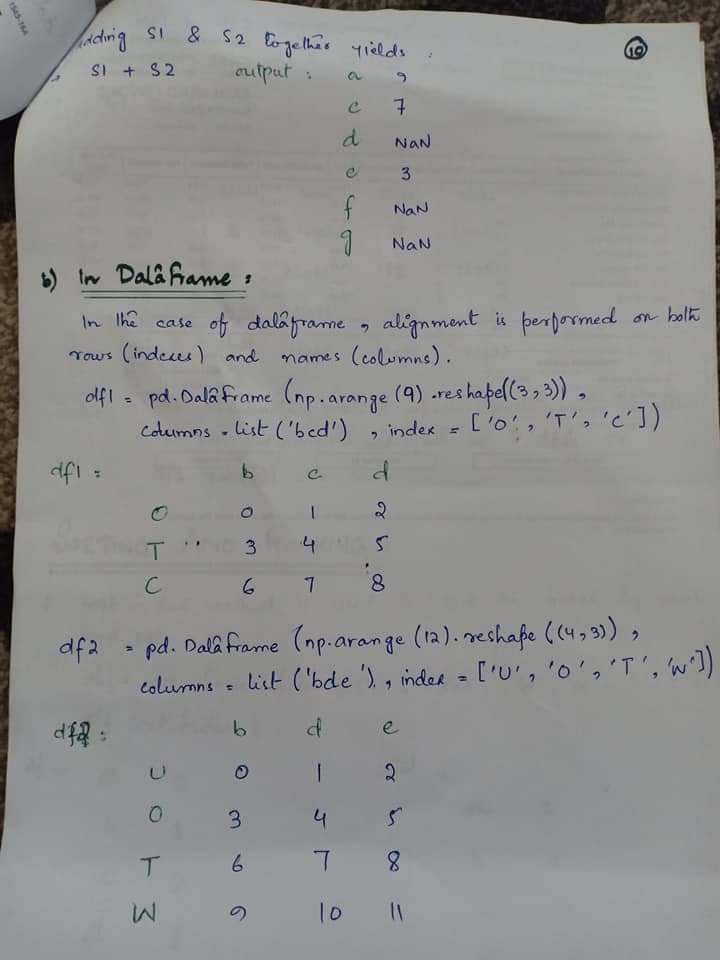 adding S1 & S2 together yields :
S1 + S2 output : a 9
c 7
d NaN
e 3
f NaN
g NaN
10
b) In Dataframe :
In the case of dataframe, alignment is performed on both
rows (indexes) and names (columns).
df1 = pd.DataFrame (np.arange (9).reshape((3,3)),
columns = list ('bcd') , index = ['O', 'T', 'C'])
df1 = b c d
O 0 1 2
T 3 4 5
C 6 7 8
df2 = pd.Dataframe (np.arange (12).reshape ((4,3)) ,
columns = list ('bde'), index = ['U', 'O', 'T', 'W'])
df2 : b d e
U 0 1 2
O 3 4 5
T 6 7 8
W 9 10 11